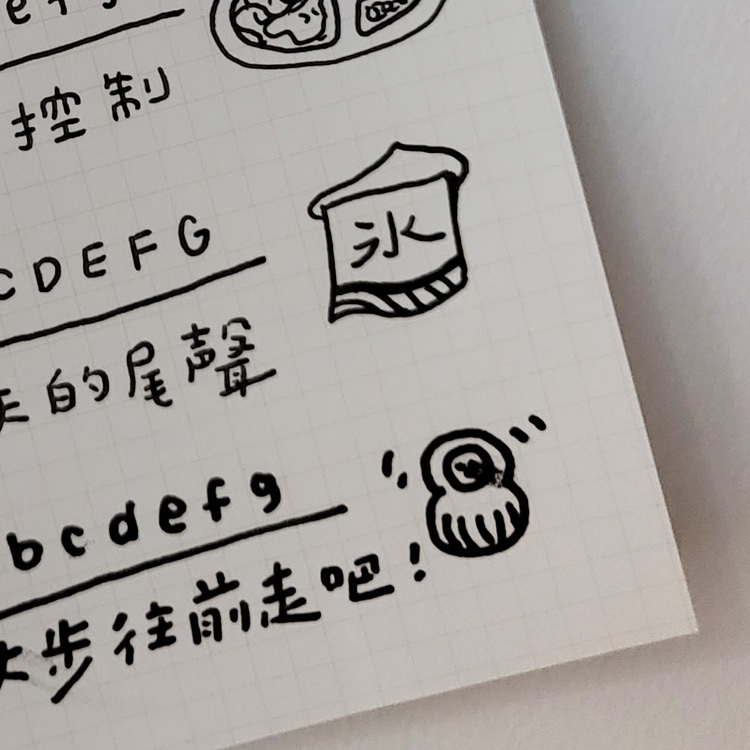 e f g
控制
C D E F G
氷
天的尾聲
b c d e f g
大步往前走吧！